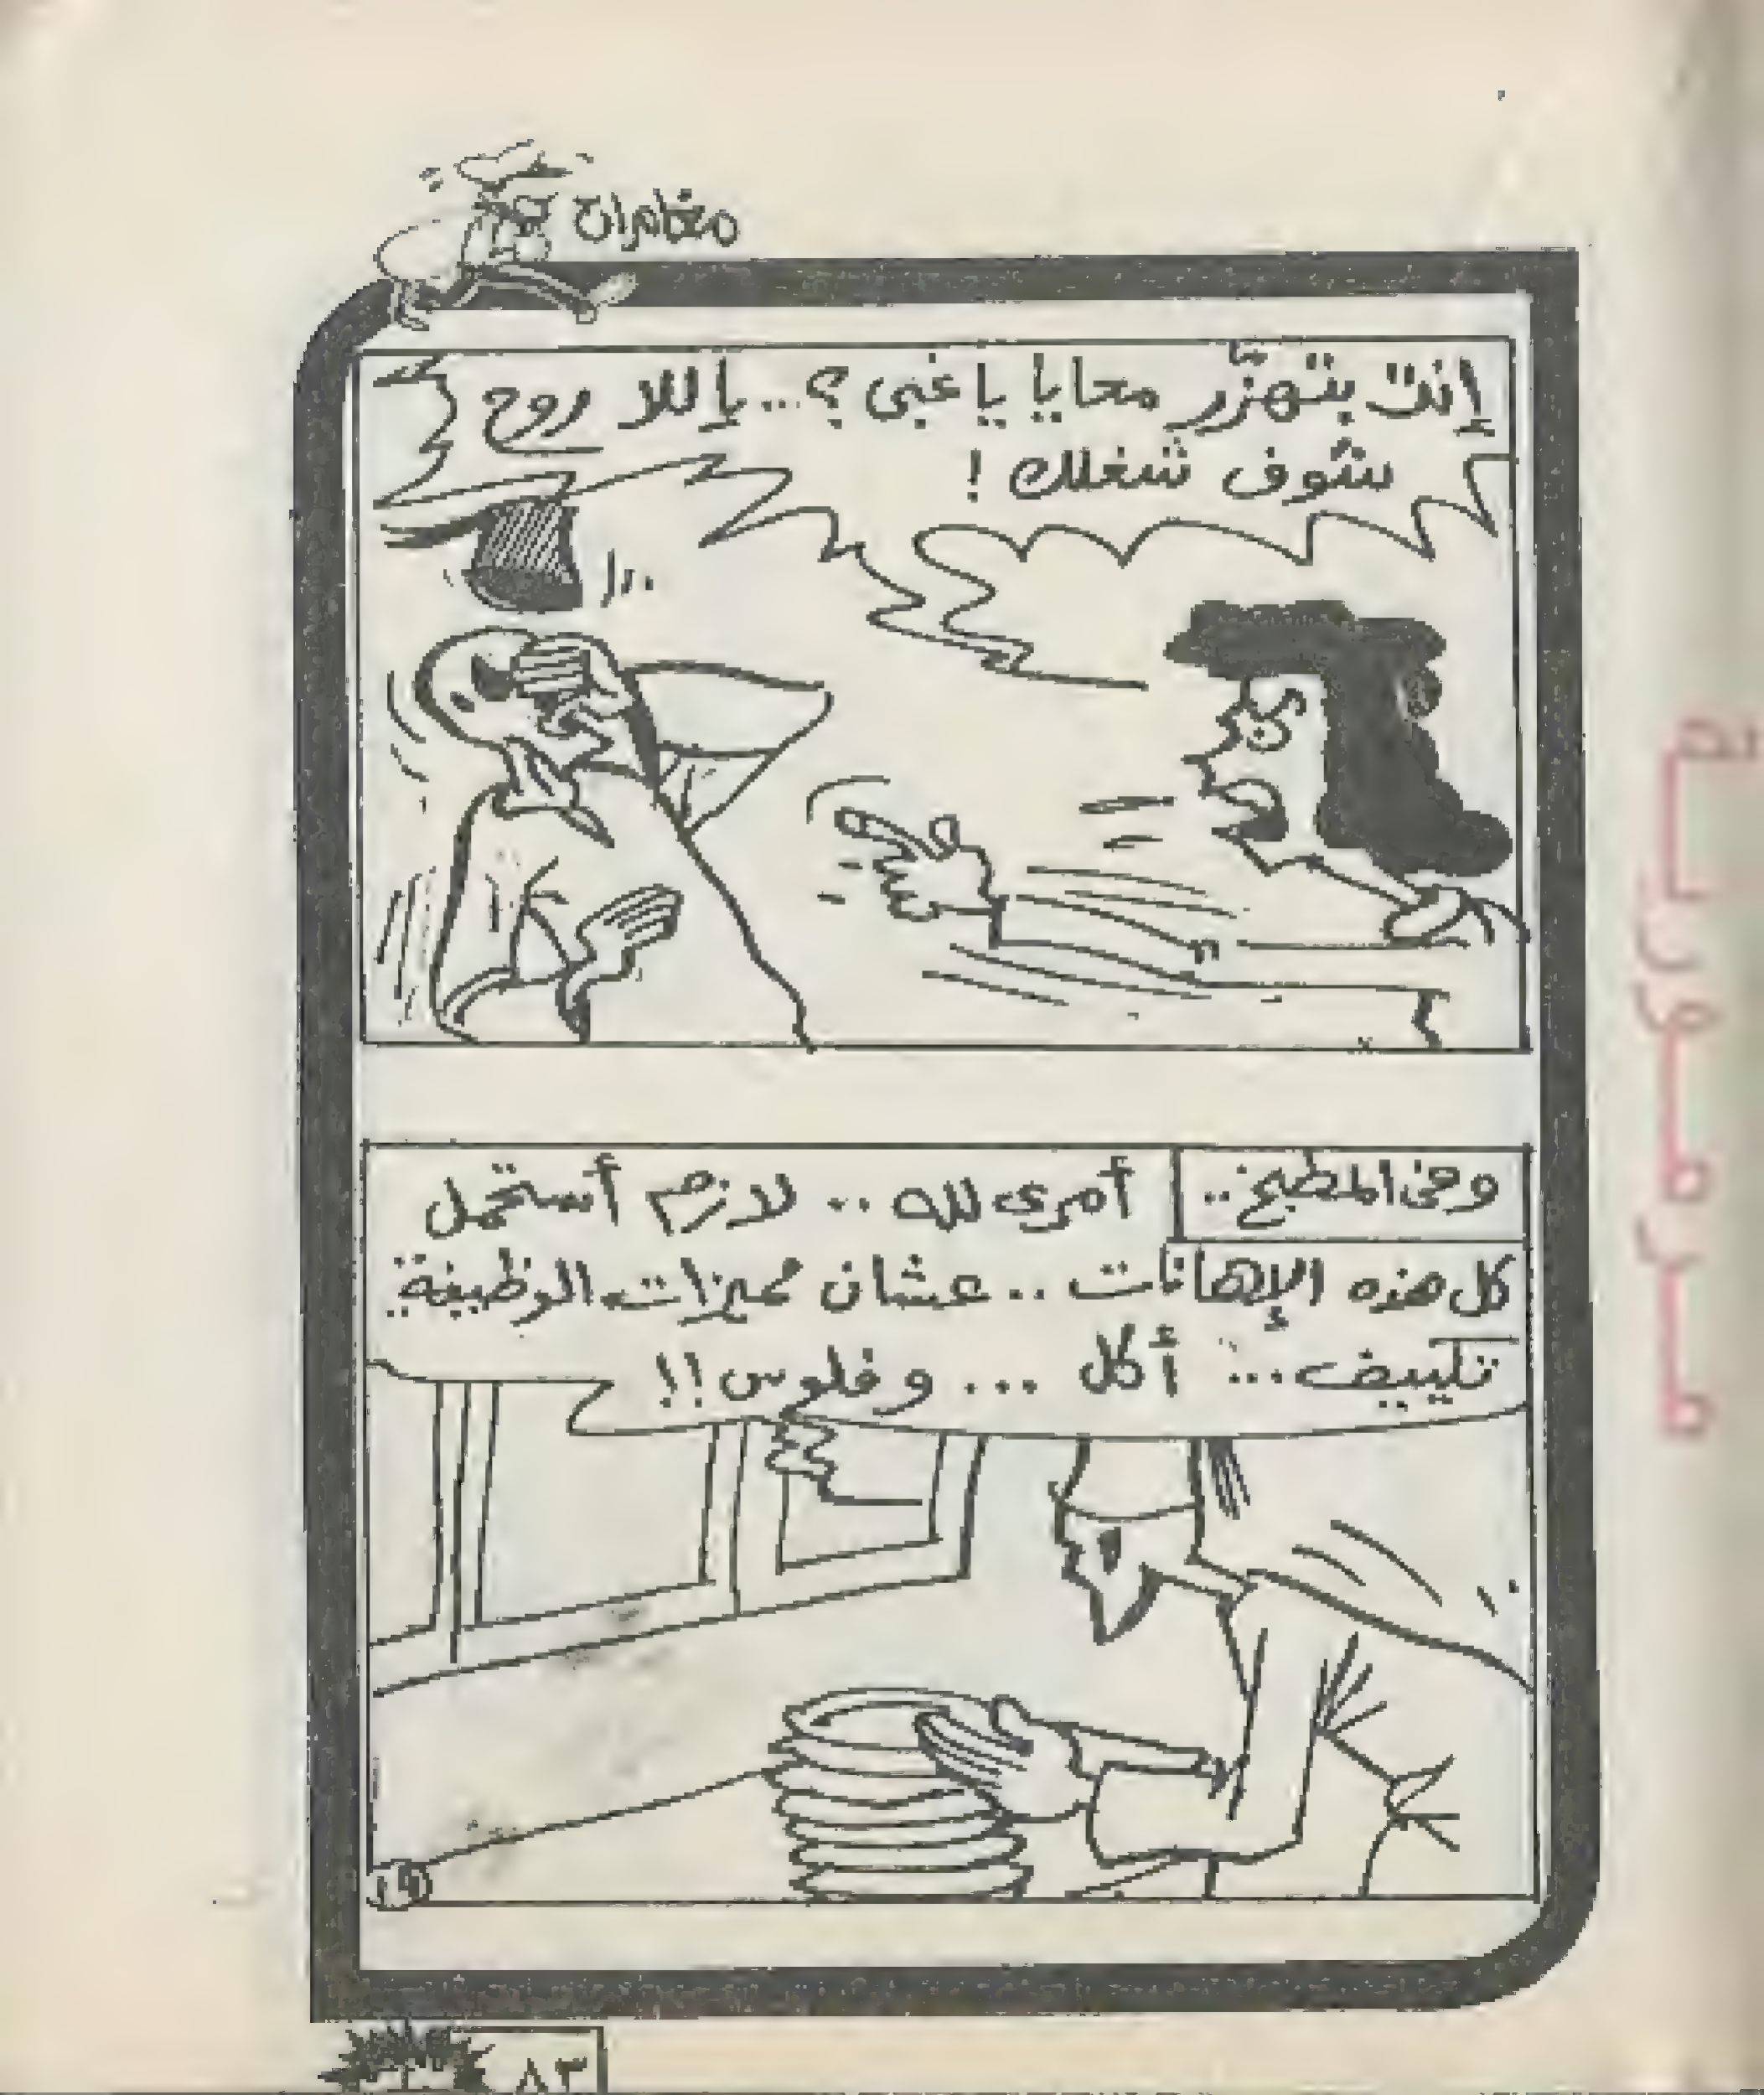 مغامرات
إنت بتهزّر معايا يا غبى ؟... يا للا روح
شوف شغلك !
وفى المطبخ..
أمرى لله .. لازم أستحمل
كل هذه الإهانات .. عشان مميزات الوظيفة..
تكييف... أكل ... وفلوس !!
١٩
٨٣